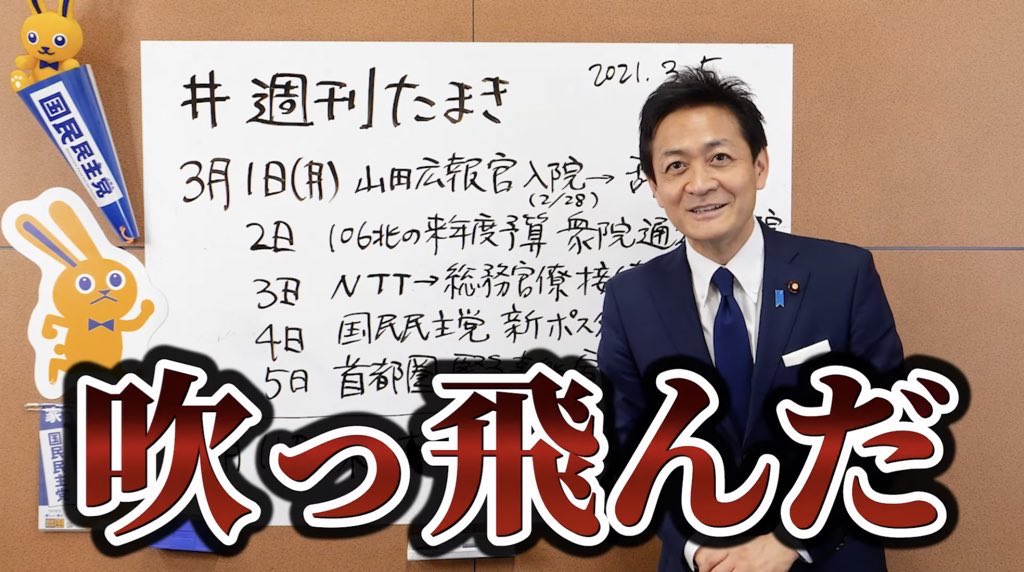 国民民主党
2021.3.5
#週刊たまき
3月1日(月)山田広報官入院→
(2/28)
2日 106兆の来年度予算 衆院通
3日 NTT→総務官僚接
4日 国民民主党 新ポス
5日 首都圏
家
国民民主党
吹っ飛んだ